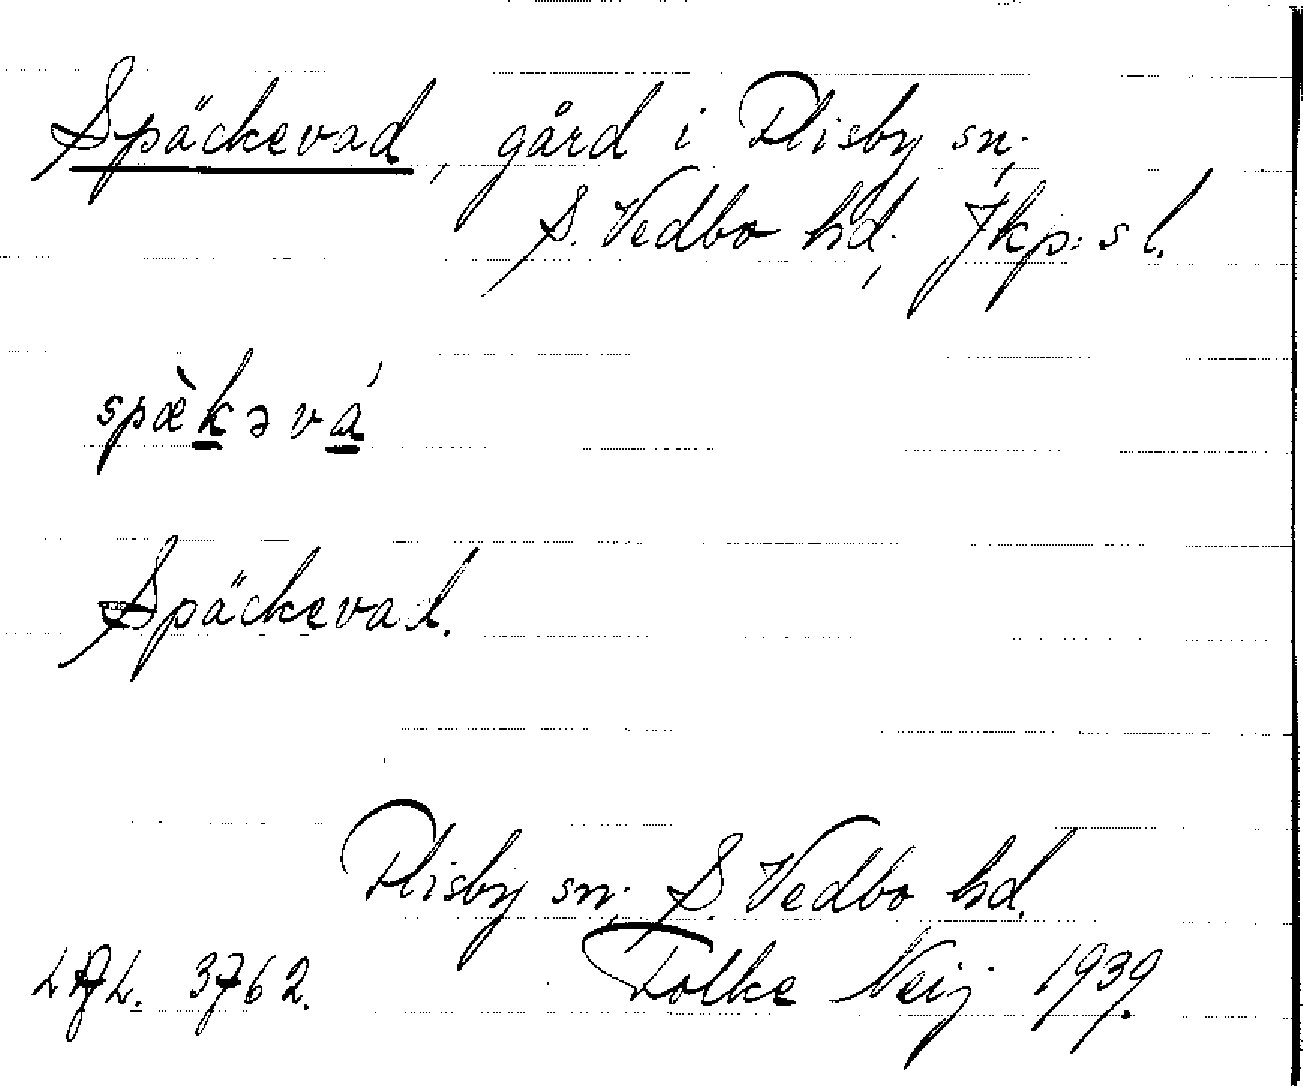 Späckevad, gård i Flisby sn,
S. Vedbo hd, Jkp:s l.
spæ̀kəvá
Späckevad.
Flisby sn, S. Vedbo hd.
3762. Folke Neij 1939.